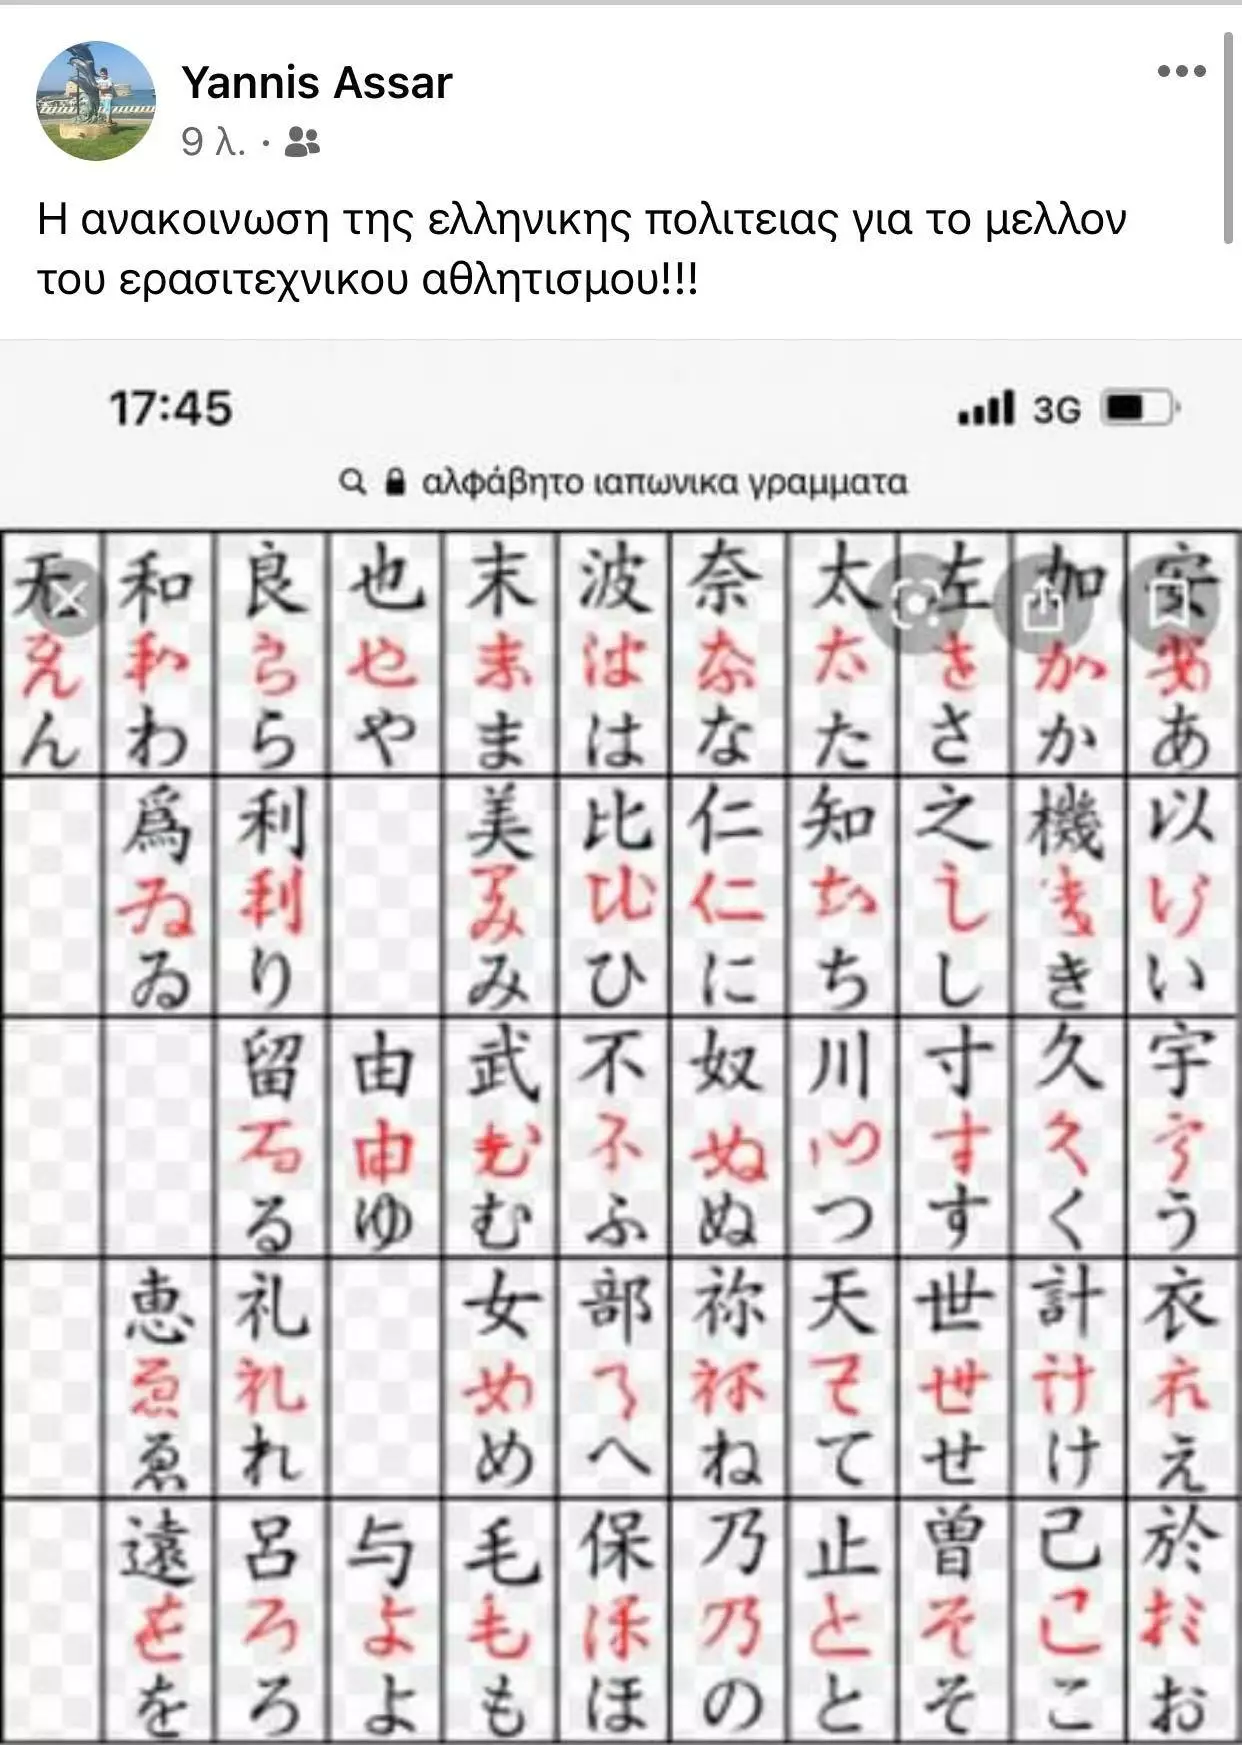 Yannis Assar
9 λ.
Η ανακοινωση της ελληνικης πολιτειας για το μελλον
του ερασιτεχνικου αθλητισμου!!!
17:45
3G
αλφάβητο ιαπωνικα γραμματα
无 和 良 也 末 波 奈 太 左 加 安
ん わ ら や ま は な た さ か あ
爲 利 美 比 仁 知 之 機 以
ゐ り み ひ に ち し き い
留 由 武 不 奴 川 寸 久 宇
る ゆ む ふ ぬ つ す く う
恵 礼 女 部 祢 天 世 計 衣
ゑ れ め へ ね て せ け え
遠 呂 与 毛 保 乃 止 曽 己 於
を ろ よ も ほ の と そ こ お